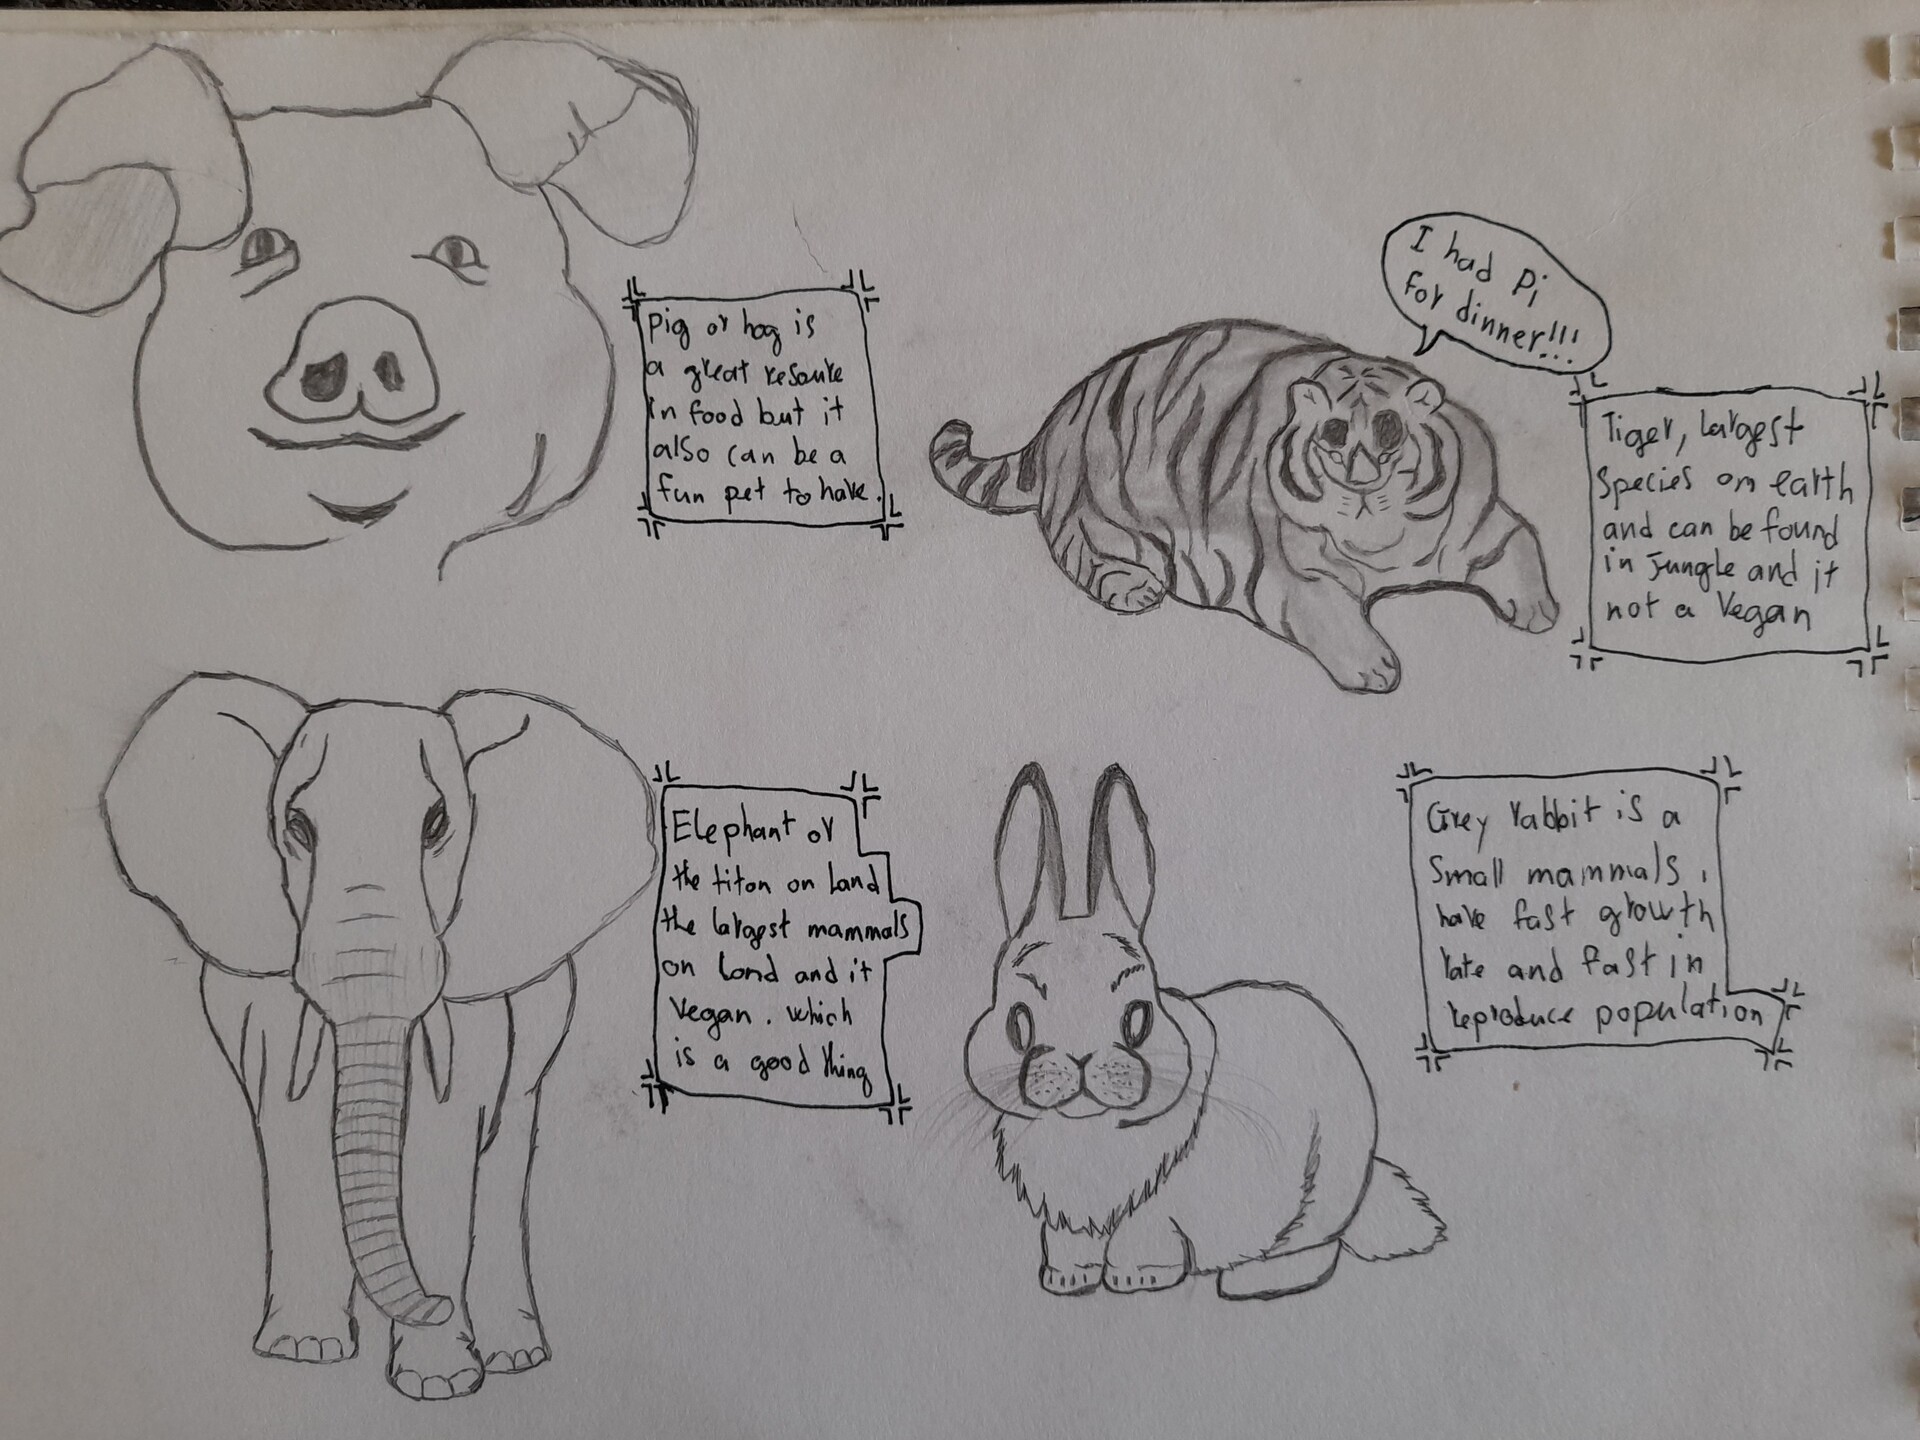 Pig or hog is
a great resource
in food but it
also can be a
fun pet to have.
I had Pi
for dinner!!!
Tiger, largest
species on earth
and can be found
in Jungle and it
not a Vegan
Elephant or
the titan on land
the largest mammals
on land and it
Vegan. which
is a good thing
Grey rabbit is a
small mammals,
have fast growth
rate and fast in
reproduce population